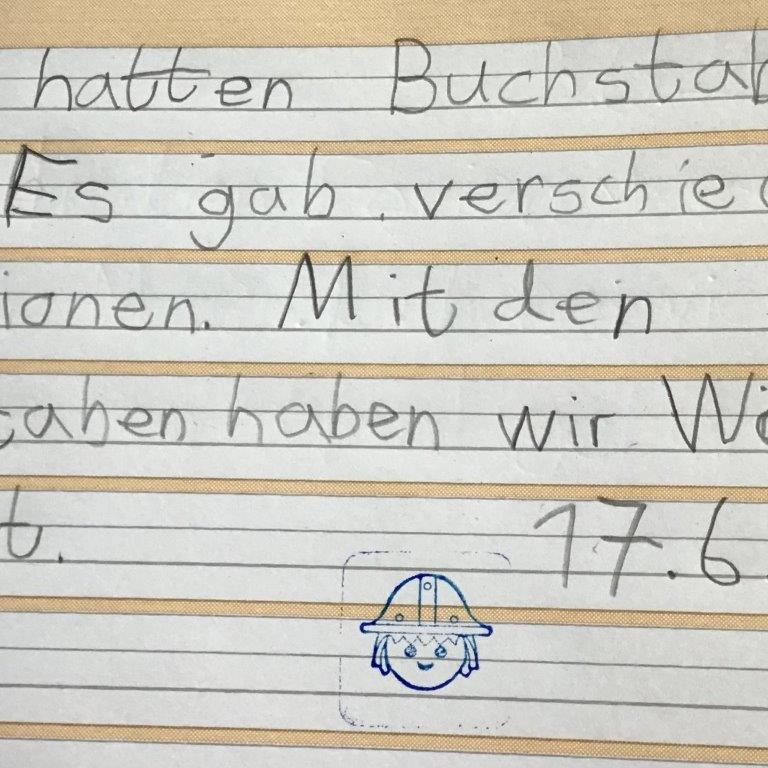 hatten Buchstab
Es gab verschied
ionen. Mit den
aben haben wir Wö
t. 17.6.